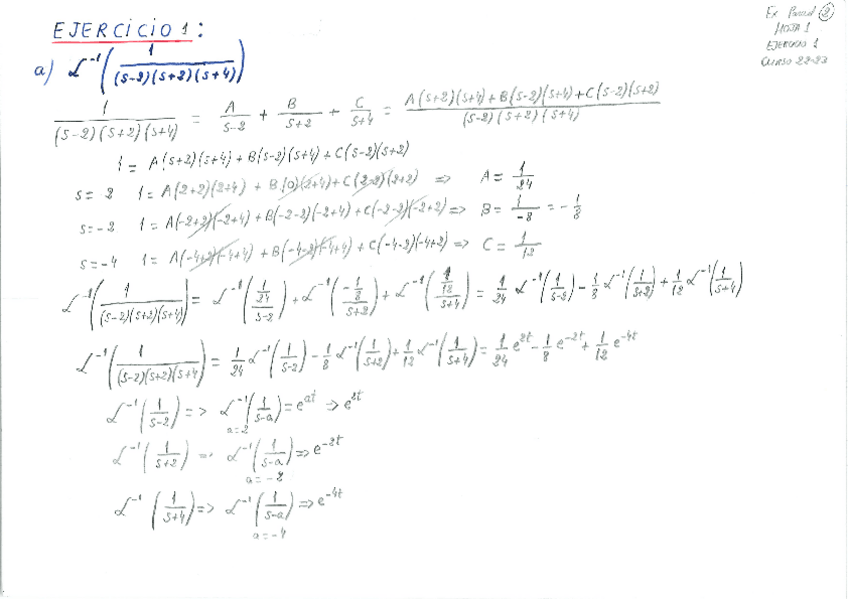 EJERCICIO 1:
Ex Parcial 2
HOJA 1
EJERCICIO 1
CURSO 22-23
a) ℒ⁻¹(1/((s-2)(s+2)(s+4)))
1/((s-2)(s+2)(s+4)) = A/(s-2) + B/(s+2) + C/(s+4) = (A(s+2)(s+4)+B(s-2)(s+4)+C(s-2)(s+2))/((s-2)(s+2)(s+4))
1 = A(s+2)(s+4)+B(s-2)(s+4)+C(s-2)(s+2)
s= 2 1=A(2+2)(2+4) + B(0)(2+4)+C(2-2)(2+2) => A= 1/24
s=-2 1=A(-2+2)(-2+4)+B(-2-2)(-2+4)+C(-2-2)(-2+2)=> B= 1/-8 = -1/8
s=-4 1=A(-4+2)(-4+4)+B(-4-2)(-4+4)+C(-4-2)(-4+2)=> C= 1/12
ℒ⁻¹(1/((s-2)(s+2)(s+4)))= ℒ⁻¹((1/24)/(s-2))+ℒ⁻¹((-1/8)/(s+2))+ℒ⁻¹((1/12)/(s+4)) = 1/24 ℒ⁻¹(1/(s-2))-1/8 ℒ⁻¹(1/(s+2))+1/12 ℒ⁻¹(1/(s+4))
ℒ⁻¹(1/((s-2)(s+2)(s+4))) = 1/24 ℒ⁻¹(1/(s-2))-1/8 ℒ⁻¹(1/(s+2))+1/12 ℒ⁻¹(1/(s+4))= 1/24 e^2t-1/8 e^-2t+1/12 e^-4t
ℒ⁻¹(1/(s-2))=> ℒ⁻¹(1/(s-a))=e^at => e^2t
a=2
ℒ⁻¹(1/(s+2)) => ℒ⁻¹(1/(s-a))=>e^-2t
a=-2
ℒ⁻¹(1/(s+4))=> ℒ⁻¹(1/(s-a))=>e^-4t
a=-4